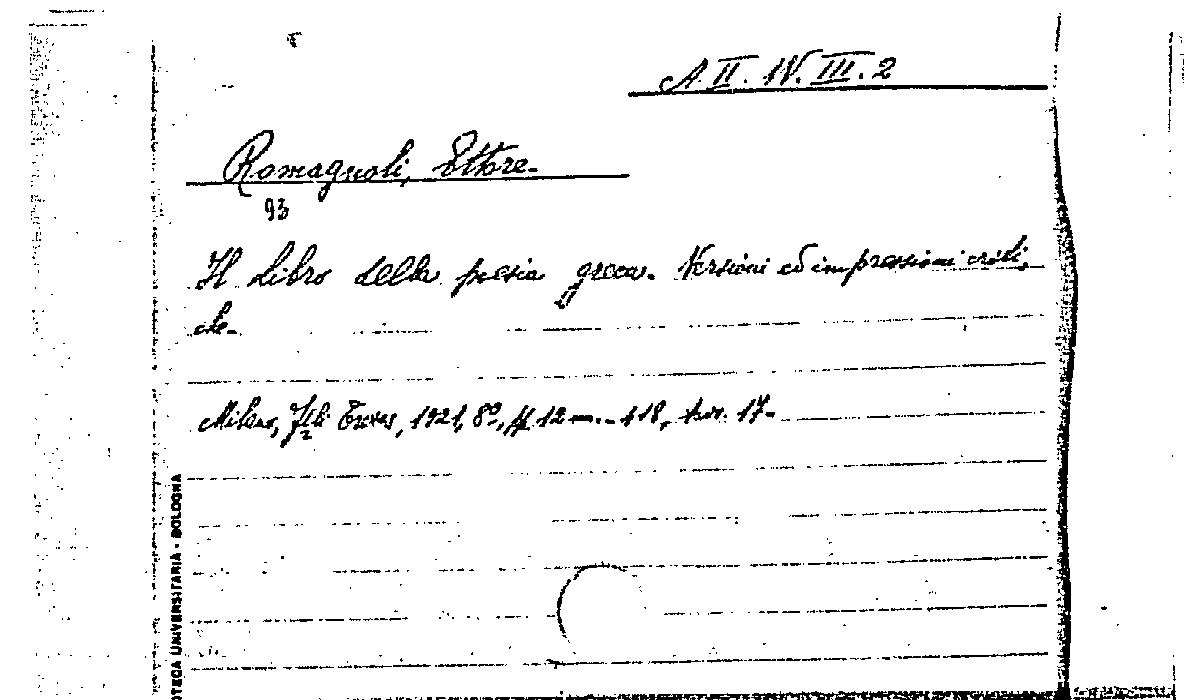 A II. IV. III. 2
Romagnoli, Ettore.
93
Il Libro della poesia greca. Versioni ed impressioni criti-
che.
Milano, Flli Treves, 1921, 8º, pp. 12 418, tav. 17.
OTECA UNIVERSITARIA - BOLOGNA